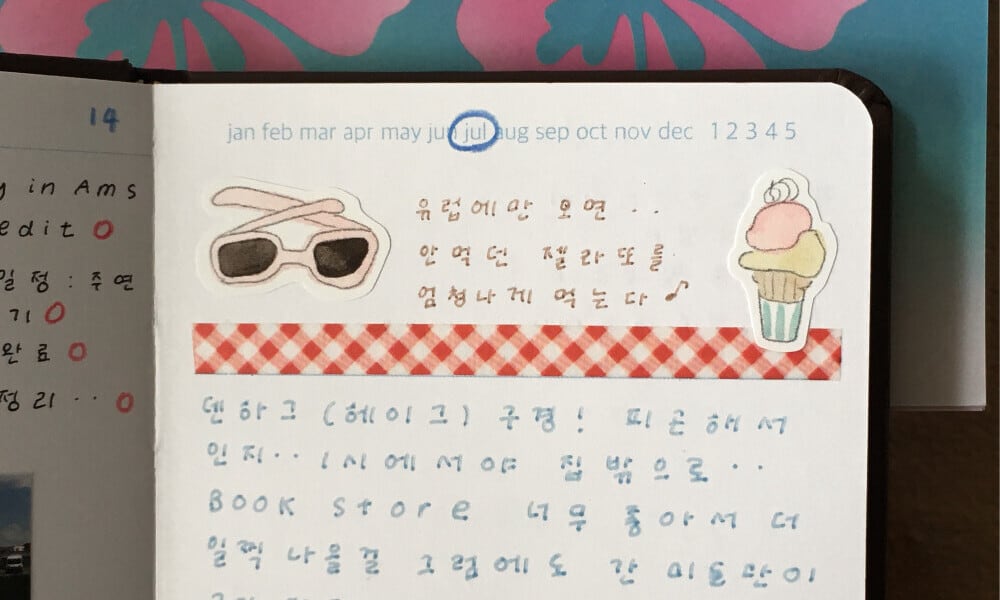 14
y in Ams
edit O
일정 : 주연
기 O
완료 O
정리 ·· O
jan feb mar apr may jun jul aug sep oct nov dec 1 2 3 4 5
유럽에만 오면 ··
안 먹던 젤라또를
엄청나게 먹는다 ♪
덴하그 (헤이그) 구경! 피곤해서
인지·· 1시에서야 집 밖으로 ··
BOOK Store 너무 좋아서 더
일찍 나올걸